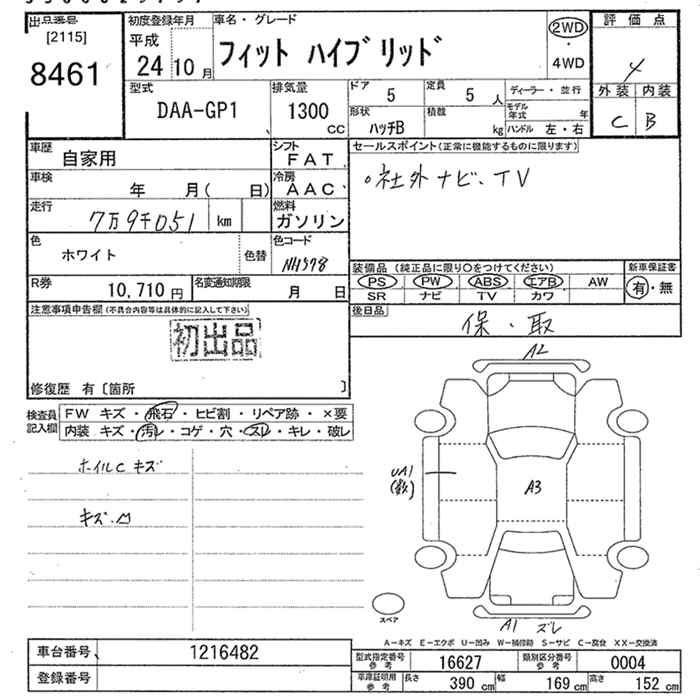 出品番号
[2115]
8461
初度登録年月
平成
24 10 月
車名・グレード
フィット ハイブリッド
2WD
・
4WD
評価点
4
外装 内装
C B
型式
DAA-GP1
排気量
1300
cc
ドア
5
定員
5 人
形状
ハッチB
積載
kg
ディーラー・並行
モデル年式 年
ハンドル 左・右
車歴
自家用
シフト
FAT
車検
年 月( 日)
冷房
AAC
走行
7万9千051 km
燃料
ガソリン
色
ホワイト
色替
色コード
NH578
R券
10,710 円
名変通知期限
月 日
セールスポイント(正常に機能するものに限ります)
○社外ナビ、TV
装備品(純正品に限り○をつけてください)
PS PW ABS エアB AW
SR ナビ TV カワ
新車保証書
有・無
後日品
保・取
注意事項申告欄(不具合内容等は具体的に記入して下さい)
初出品
修復歴 有〔箇所 〕
検査員
記入欄
FW キズ・飛石・ヒビ割・リペア跡・×要
内装 キズ・汚レ・コゲ・穴・スレ・キレ・破レ
ホイルC キズ
キズ.凹
A2
UA1
(数)
A3
A1 ズレ
スペア
A－キズ E－エクボ U－凹み W－補修跡 S－サビ C－腐食 XX－交換済
車台番号
1216482
登録番号
型式指定番号
参考
16627
類別区分番号
参考
0004
車庫証明用
参考
長さ
390 cm
幅
169 cm
高さ
152 cm